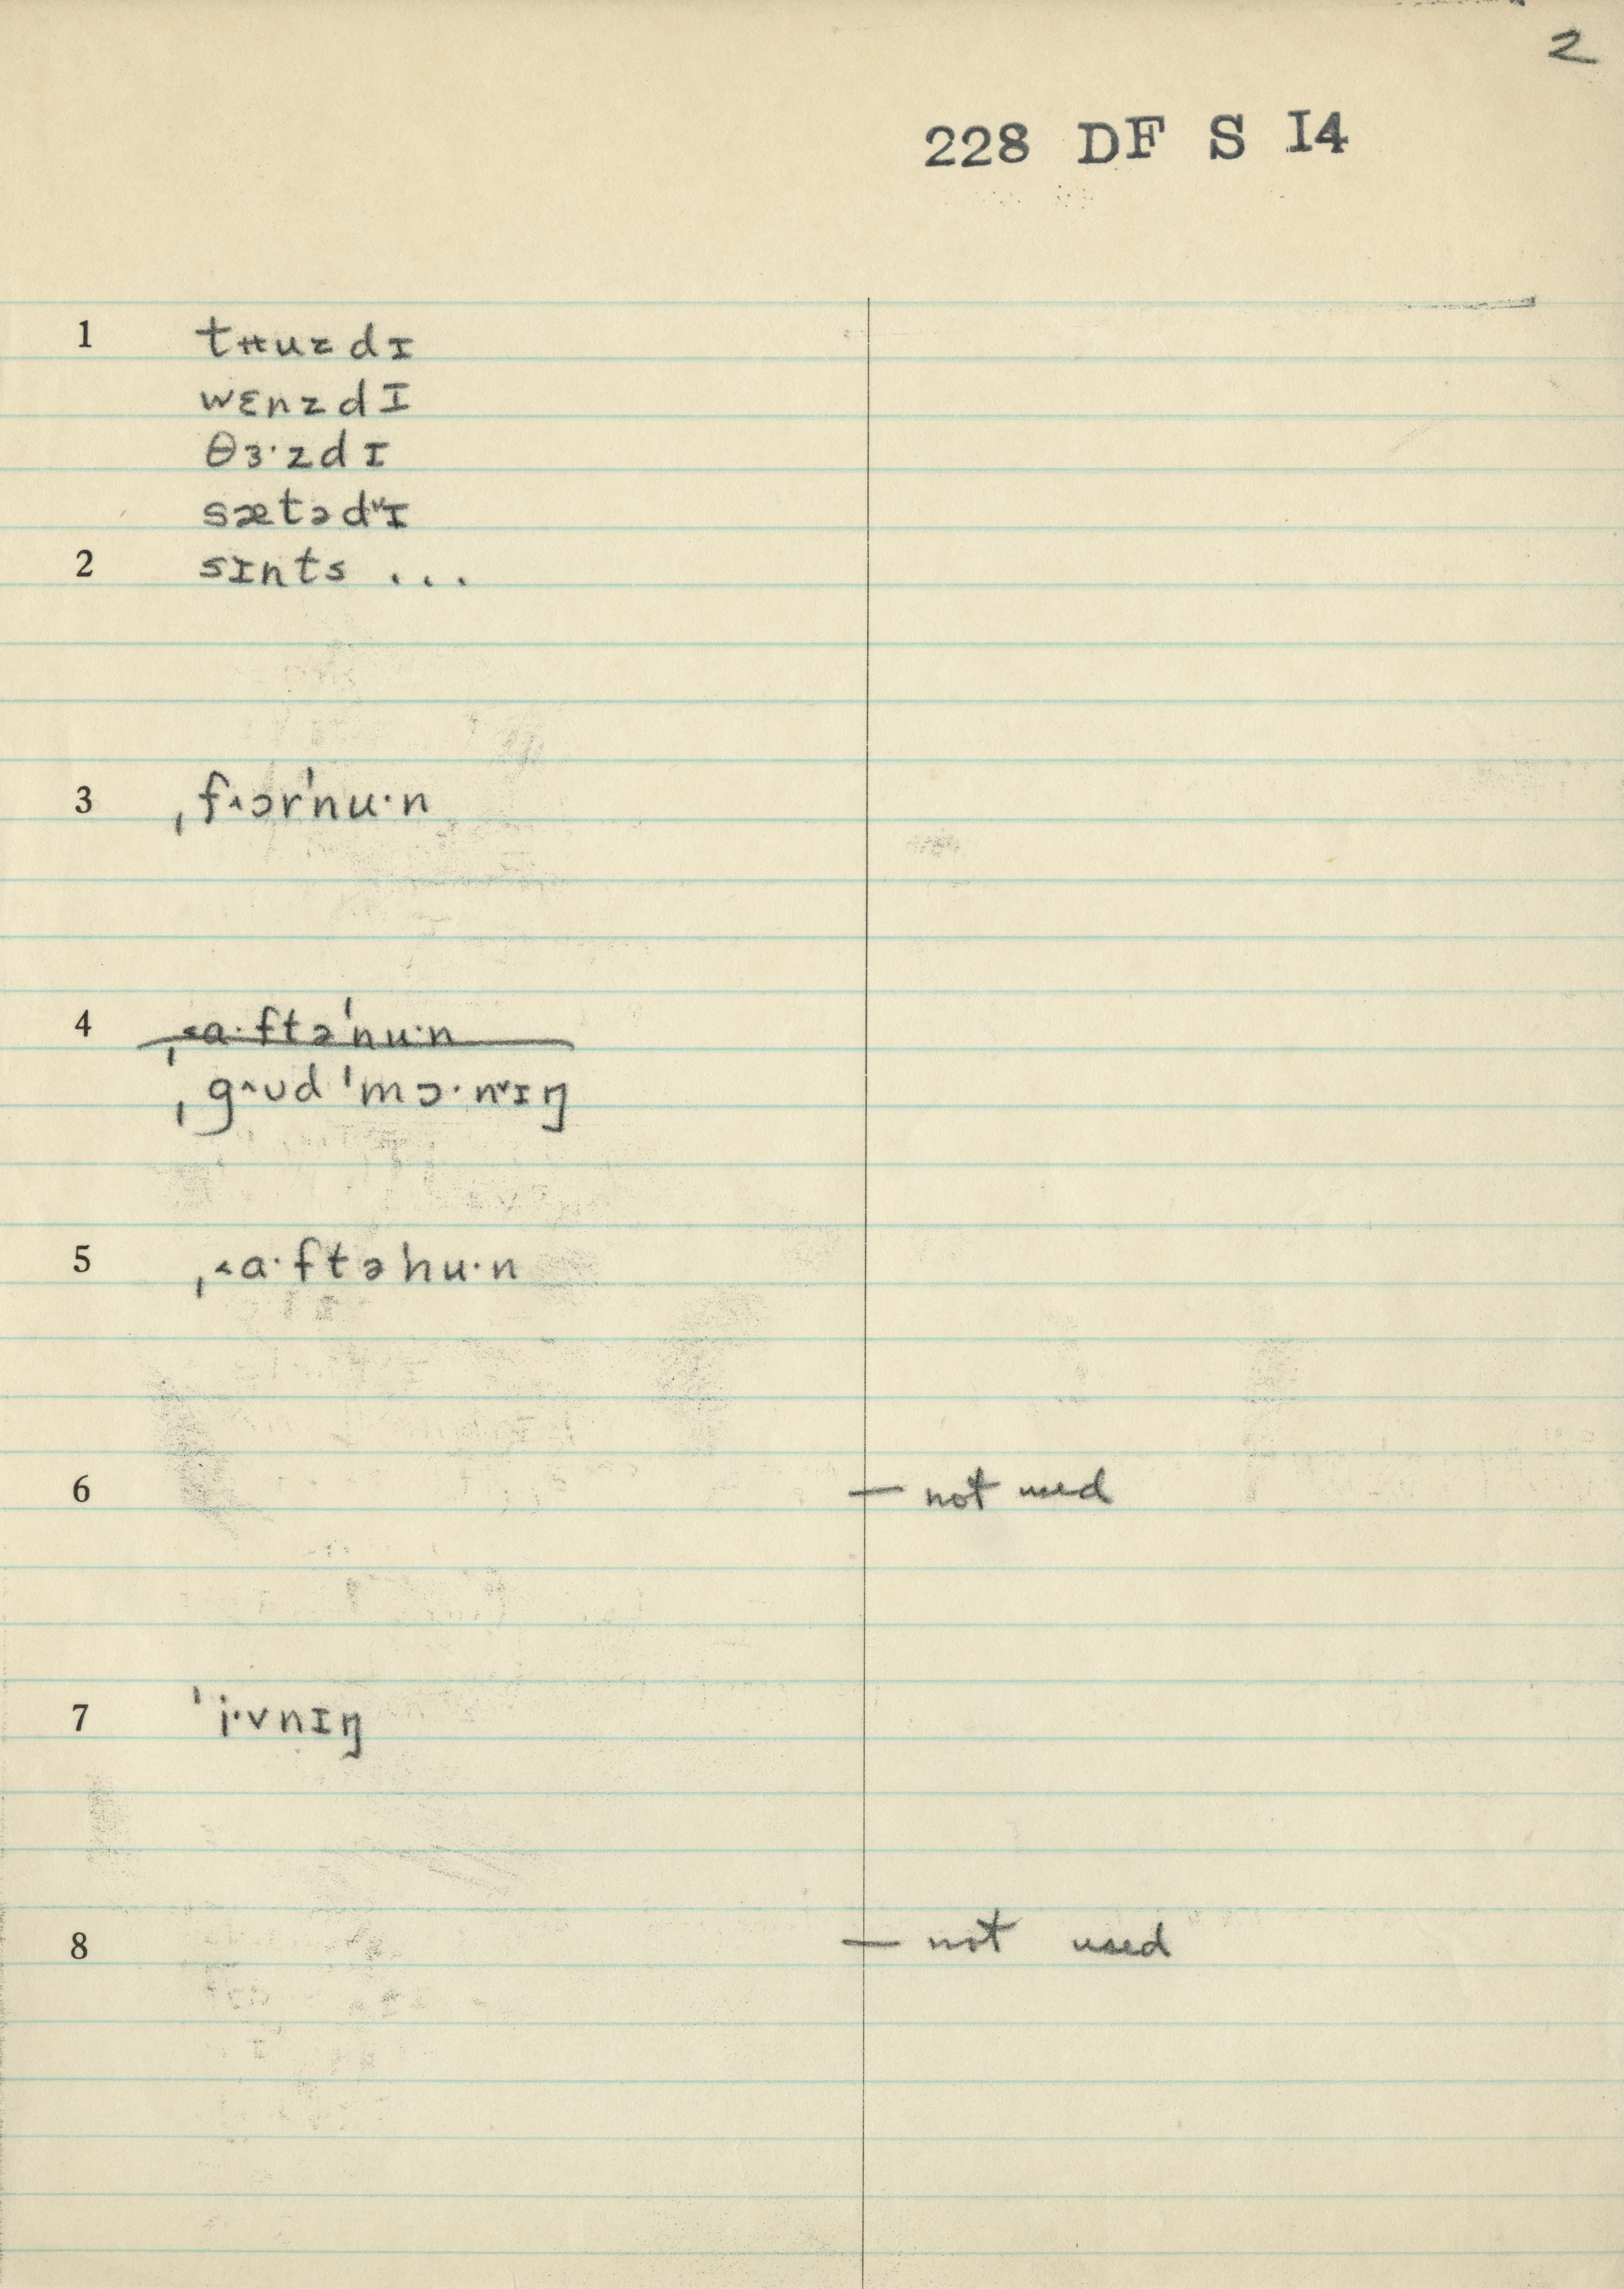 2
228 DF S I4
1 tʉuzdɪ
wɛnzdɪ
θɜ·zdɪ
sætəd˅ɪ
2 sɪnts ...
3 ˌf˄ɔr'nu·n
4 ˌ˂a·ftə'nu·n
ˌg˄ʊd 'mɔ·n˅ɪŋ
5 ˌ˂a·ftə'nu·n
6 — not used
7 'i·vnɪŋ
8 — not used